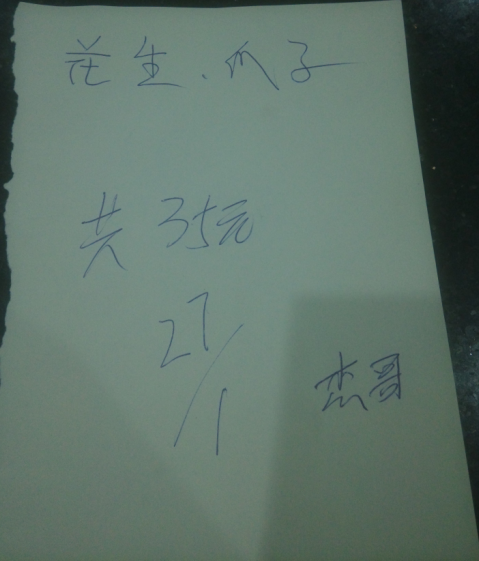 花生、爪子
共35元
27/1
杰哥